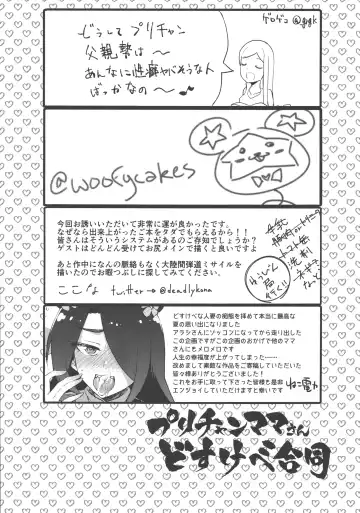 ゲロゲコ@grgk
どうしてプリチャン
父親勢は〜
あんなに性癖やばそうな人
ばっかなの〜♪
@woofycakes
今回お誘いいただいて非常に運が良かったです。
なぜなら出来上がったご本をタダでもらえるから！！
皆さんはそういうシステムがあるのご存知でしょうか？
ゲストはどんどん受けてお尻メインで描くと良いですよ
あと作中になんの脈絡もなく大陸間弾道ミサイルを
描いたのでお暇つぶしに探してみてください。
ここな twitter→@deadlykona
どすけべな人妻の痴態を拝めて本当に最高な
夏の思い出になりました
アラシさんにゾッコンになってから走り出した
この企画ですがこの企画のおかげで他のママ
さんにもメロメロです
人生の幸福度が上がってしまった……
改めまして素敵な作品をご寄稿していただいた
皆々様ありがとうございました！
これをお手に取って下さった皆様も是非
エンジョイしていただけますと幸いです
プリチャンママさん
どすけべ合同